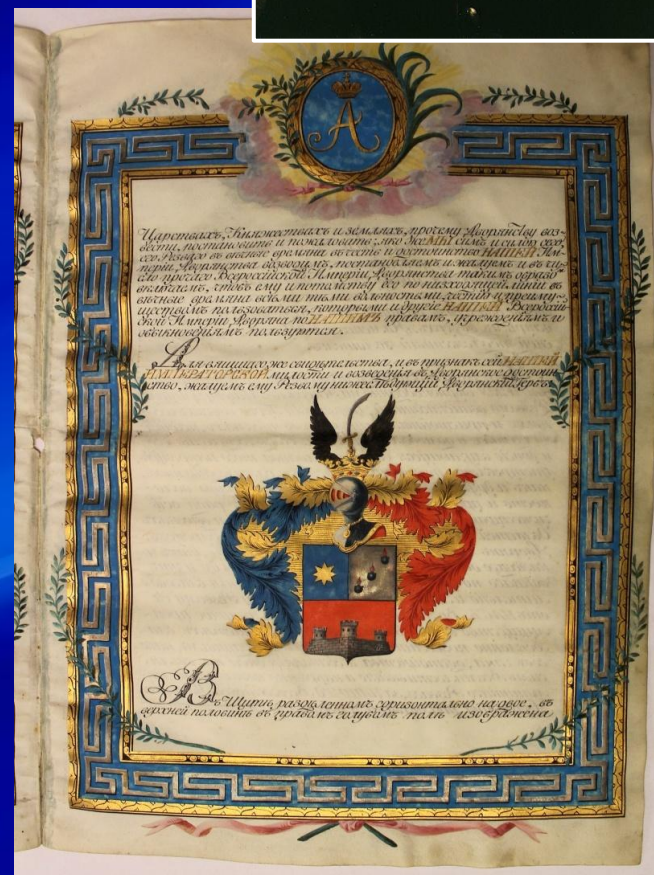 А
Царствахъ, Княжествахъ и земляхъ, прочему Дворянству воз-
вести, постановить и пожаловать; яко же МЫ симъ и силою сего,
его Рѣзваго въ вѣчныя времяна въ честь и достоинство НАШЕЙ Им-
періи, Дворянства возводимъ, постановляемъ и жалуемъ и въ чи-
сло прочаго Всероссійской Имперіи, Дворянства такимъ образо
включаемъ, чтобъ ему и потомству его по низходящей линіи въ
вѣчныя времяна всѣми тѣми вольностьми, честію и преиму-
ществомъ пользоваться, которыми и другіе НАШЕЙ Всероссій-
ской Имперіи Дворяна по НАШИМЪ правамъ, учрежденіямъ и
обыкновеніямъ пользуются.
Для вящшаго же свидѣтельства, и въ признакъ сей НАШЕЙ
ИМПЕРАТОРСКОЙ милости и возведенія въ Дворянское достоин-
ство, жалуемъ ему Рѣзвому нижеслѣдующій Дворянскій Гербъ.
Въ Щитѣ, раздѣленномъ горизонтально на двое, въ
верхней половинѣ въ правомъ голубомъ полѣ изображена